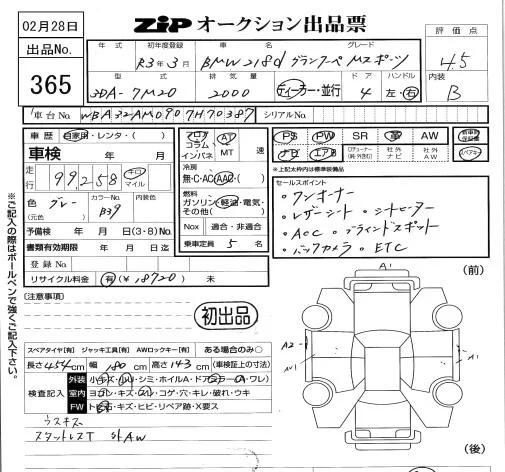 02月28日
出品No.
365
ZiP オークション出品票
評価点
4.5
内装
B
年式 初年度登録 車名 グレード
R3年3月 BMW 218d グランクーペ Mスポーツ
型式 排気量 ドア ハンドル
3DA-7M20 2000 ディーラー・並行 4 左・右
車台No. WBA32AM0907H70387 シリアルNo.
車歴 自家用・レンタ・( )
車検 年 月
走行 99,258 キロ マイル
色 グレー (元色) カラーNo. B39 内装色
予備検 年 月 日(3・8)No.
書類有効期限 年 月 日迄
登録No.
リサイクル料金 有(¥18720) 未
フロア コラム インパネ
AT
MT 速
冷房
無・C・AC・AAC・( )
燃料
ガソリン・軽油・電気・その他( )
Nox 適合・非適合
乗車定員 5 名
PS PW SR 革 AW 新車時保証書
ナビ エアB 社外ナビ 社外AW 記録簿
※上記太枠内は標準装備品
セールスポイント
。ワンオーナー
。レザーシート 。シートヒーター
。ACC 。ブラインドスポット
。バックカメラ 。ETC
※ご記入の際はボールペンで強くご記入下さい。
(注意事項)
初出品
スペアタイヤ[有] ジャッキ工具[有] AWロックキー[有] ある場合のみ○
長さ454cm 幅180cm 高さ143cm (車検証上の寸法)
検査記入
外装 小キズ・凹・シミ・ホイルA・ドアミラー(A・ワレ)
室内 ヨゴレ・キズ・スレ・コゲ・穴・キレ・破れ・ウキ
FW トビ石・キズ・ヒビ・リペア跡・X要ス
ウスキズ
スタットレスT 外AW
A1
(前)
A2
A1
A1
(後)